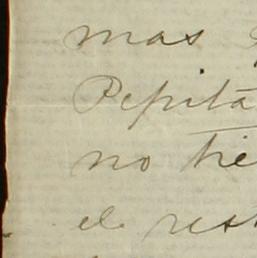 mas
Pepita
no tie
el rest